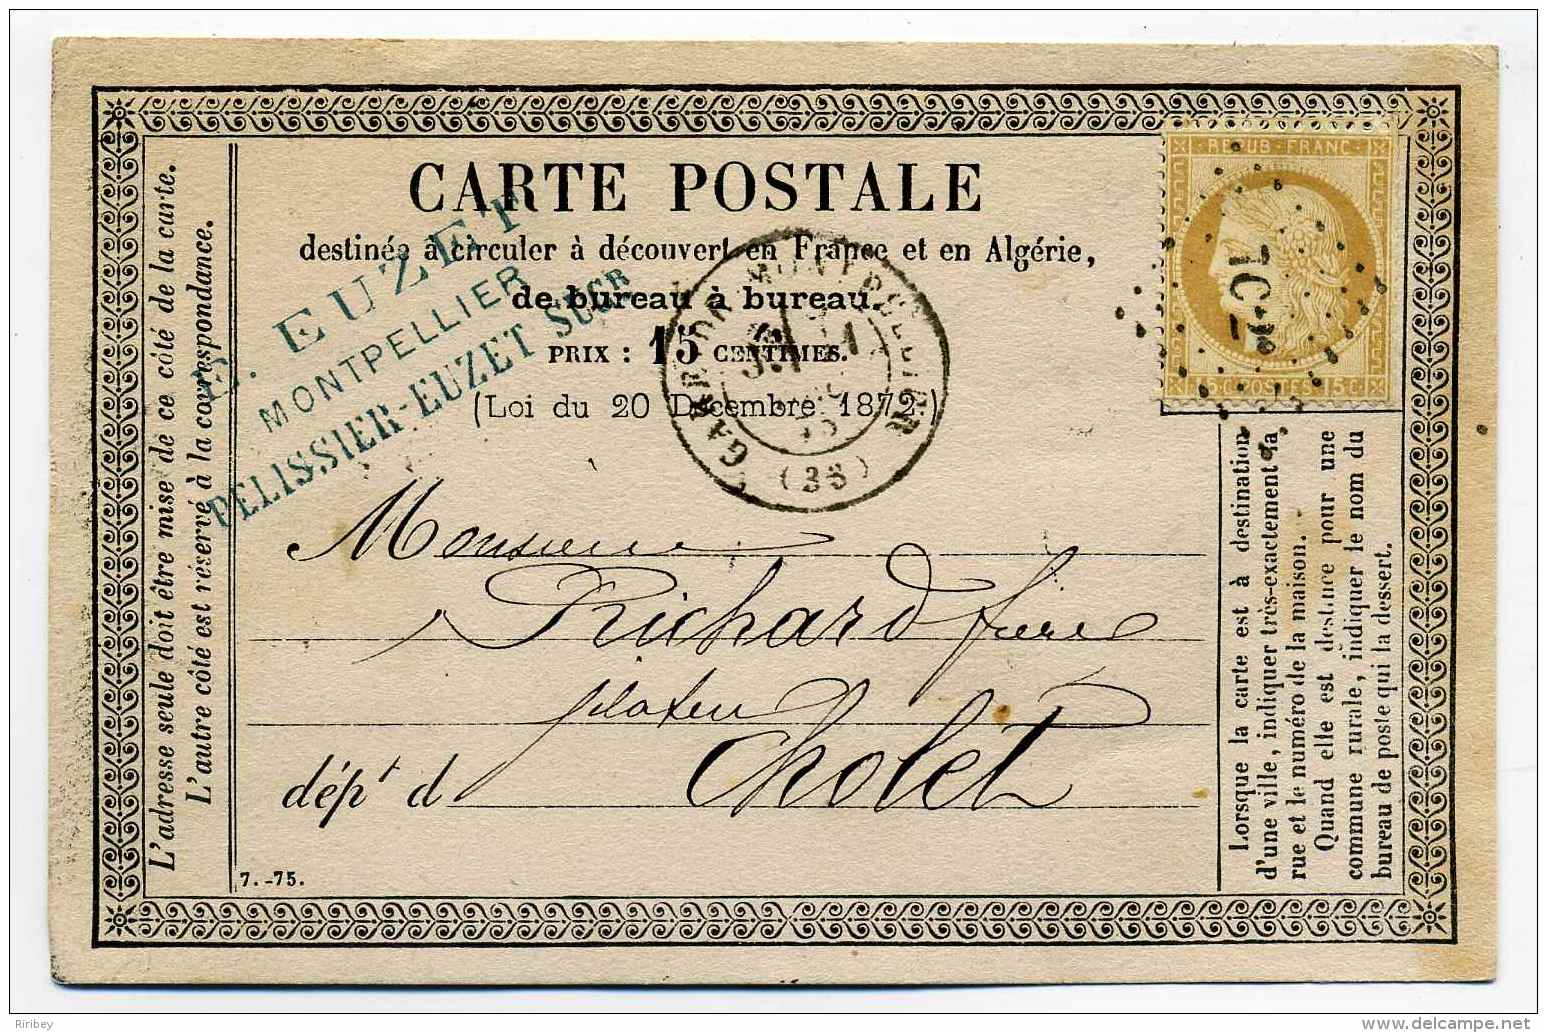 CARTE POSTALE
destinée à circuler à découvert en France et en Algérie,
de bureau à bureau.
PRIX : 15 CENTIMES.
(Loi du 20 Décembre 1872.)
E. EUZET
MONTPELLIER
PELISSIER-EUZET SUCR
GARE DE MONTPELLIER
(33)
REPUB. FRANC.
15 C. POSTES 15 C.
L'adresse seule doit être mise de ce côté de la carte.
L'autre côté est réservé à la correspondance.
Monsieur
Richard frère
Cholet
dépt d
7.-75.
Lorsque la carte est à destination
d'une ville, indiquer très-exactement la
rue et le numéro de la maison.
Quand elle est destinée pour une
commune rurale, indiquer le nom du
bureau de poste qui la dessert.
Riribey
www.delcampe.net